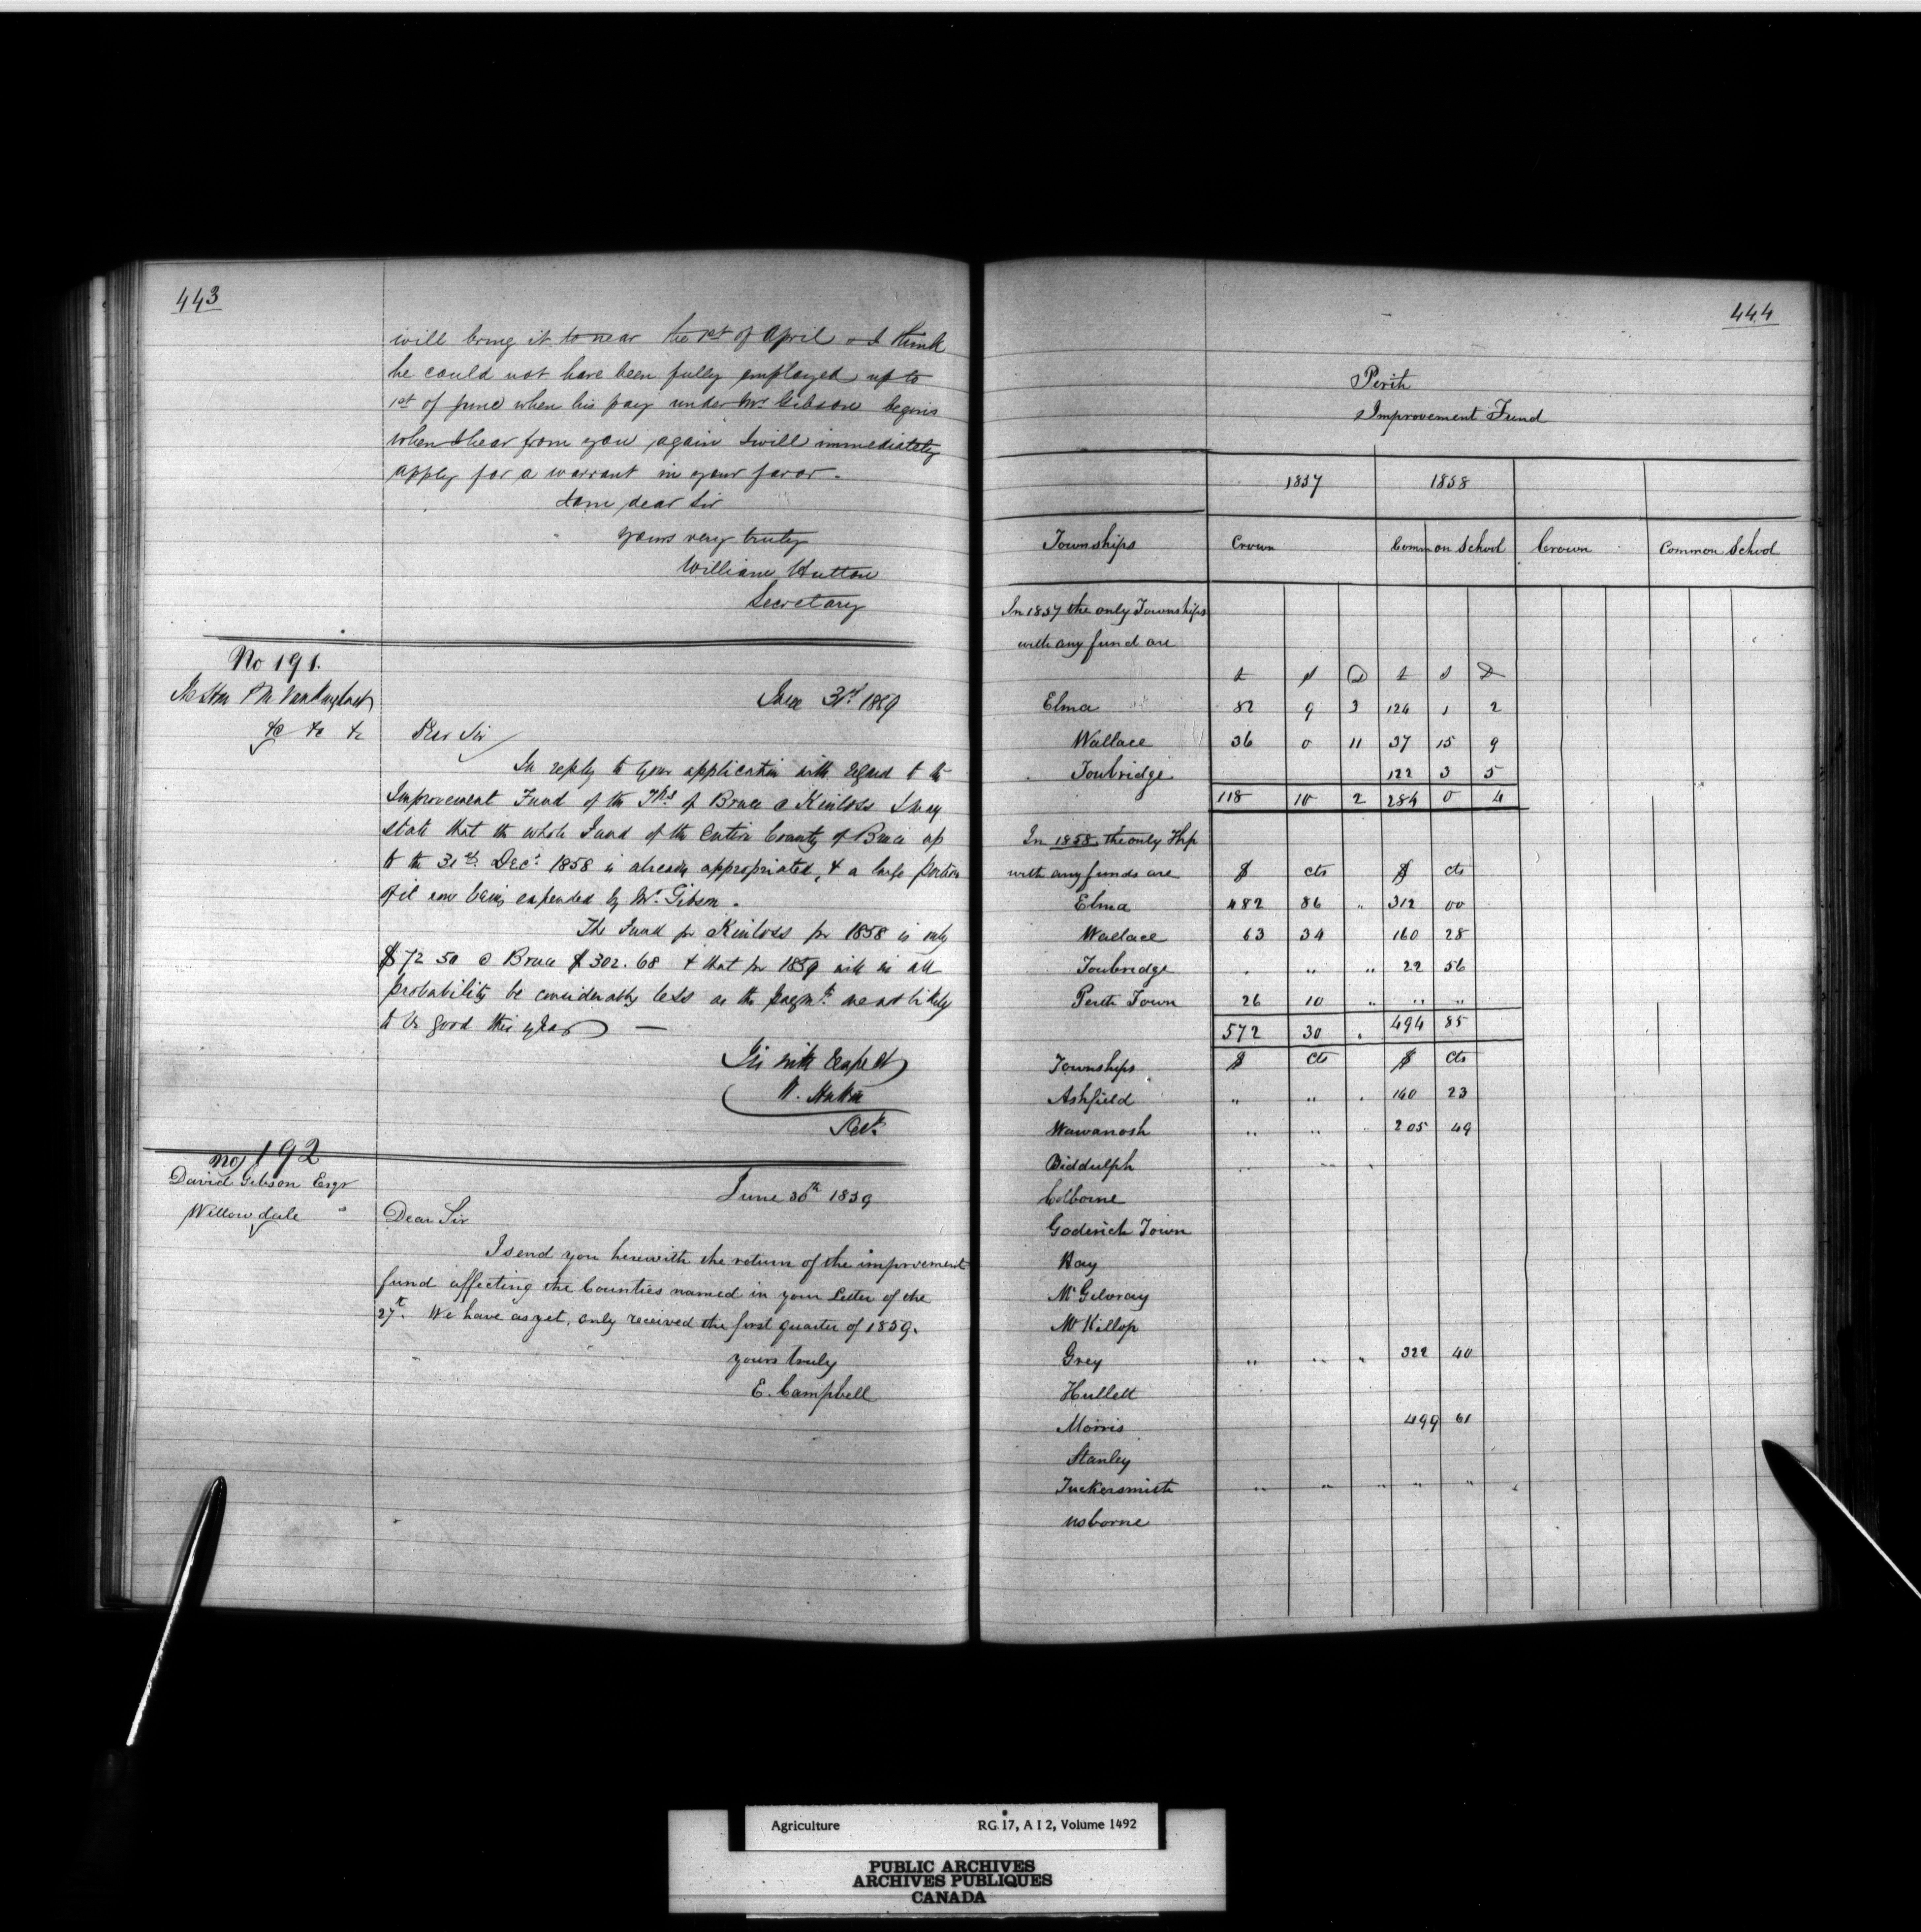 443
will bring it to near the 1st of April & I think
he could not have been fully employed up to
1st of June when his pay under Mr Gibson begins
when I hear from you again I will immediately
apply for a warrant in your favor -
I am dear Sir
yours very truly
William Hutton
Secretary
No 191.
The Hon P M Vankoughnet
&c &c &c
June 31st 1859
Dear Sir
In reply to your application with regard to the
Improvement Fund of the Tps of Bruce & Kinloss I may
state that the whole Fund of the entire County of Bruce up
to the 31st Decr 1858 is already appropriated, & a large portion
of it now being expended by Mr Gibson.
The Fund for Kinloss for 1858 is only
$72 50 & Bruce $302.68 & that for 1859 will in all
probability be considerably less as the paymts are not likely
to be good this year —
Sir with Respect
W. Hutton
Secy
No 192
David Gibson Esqr
Willowdale
June 30th 1859
Dear Sir
I send you herewith the return of the improvement
fund affecting the Counties named in your Letter of the
27th. We have as yet, only received the first quarter of 1859.
yours truly
E. Campbell
444
Perth
Improvement Fund
1857 1858
Townships Crown Common School Crown Common School
In 1857 the only Townships
with any fund are
£ s D £ s D
Elma 82 9 3 124 1 2
Wallace 36 0 11 37 15 9
Toubridge 122 3 5
118 10 2 284 0 4
In 1858 the only Thp
with any funds are $ cts $ cts
Elma 482 86 " 312 00
Wallace 63 34 160 28
Toubridge . " " 22 56
Perth Town 26 10 " " "
572 30 " 494 85
Townships $ cts $ cts
Ashfield " " " 140 23
Wawanosh " " " 205 49
Biddulph " " "
Colborne
Goderich Town
Hay
McGilvray
McKillop
Grey " " " 322 40
Hullett
Morris 499 61
Stanley
Tuckersmith " " " " " "
Usborne
Agriculture RG 17, A I 2, Volume 1492
PUBLIC ARCHIVES
ARCHIVES PUBLIQUES
CANADA